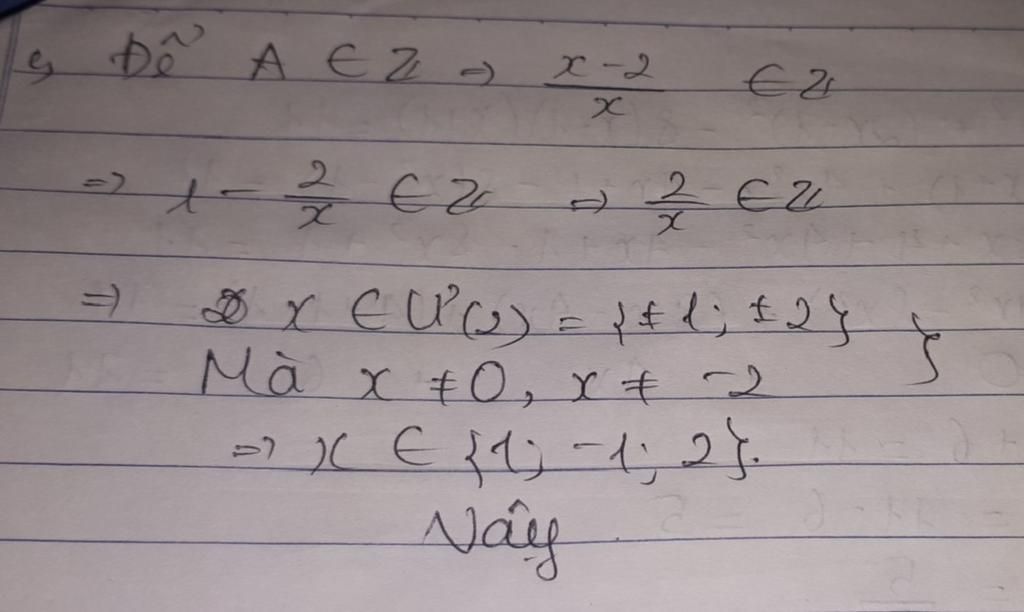 c, Để A ∈ Z => \frac{x-2}{x} ∈ Z
=> 1 - \frac{2}{x} ∈ Z => \frac{2}{x} ∈ Z
=> x ∈ Ư(2) = {±1; ±2} }
Mà x ≠ 0, x ≠ -2
=> x ∈ {1; -1; 2}.
Vậy